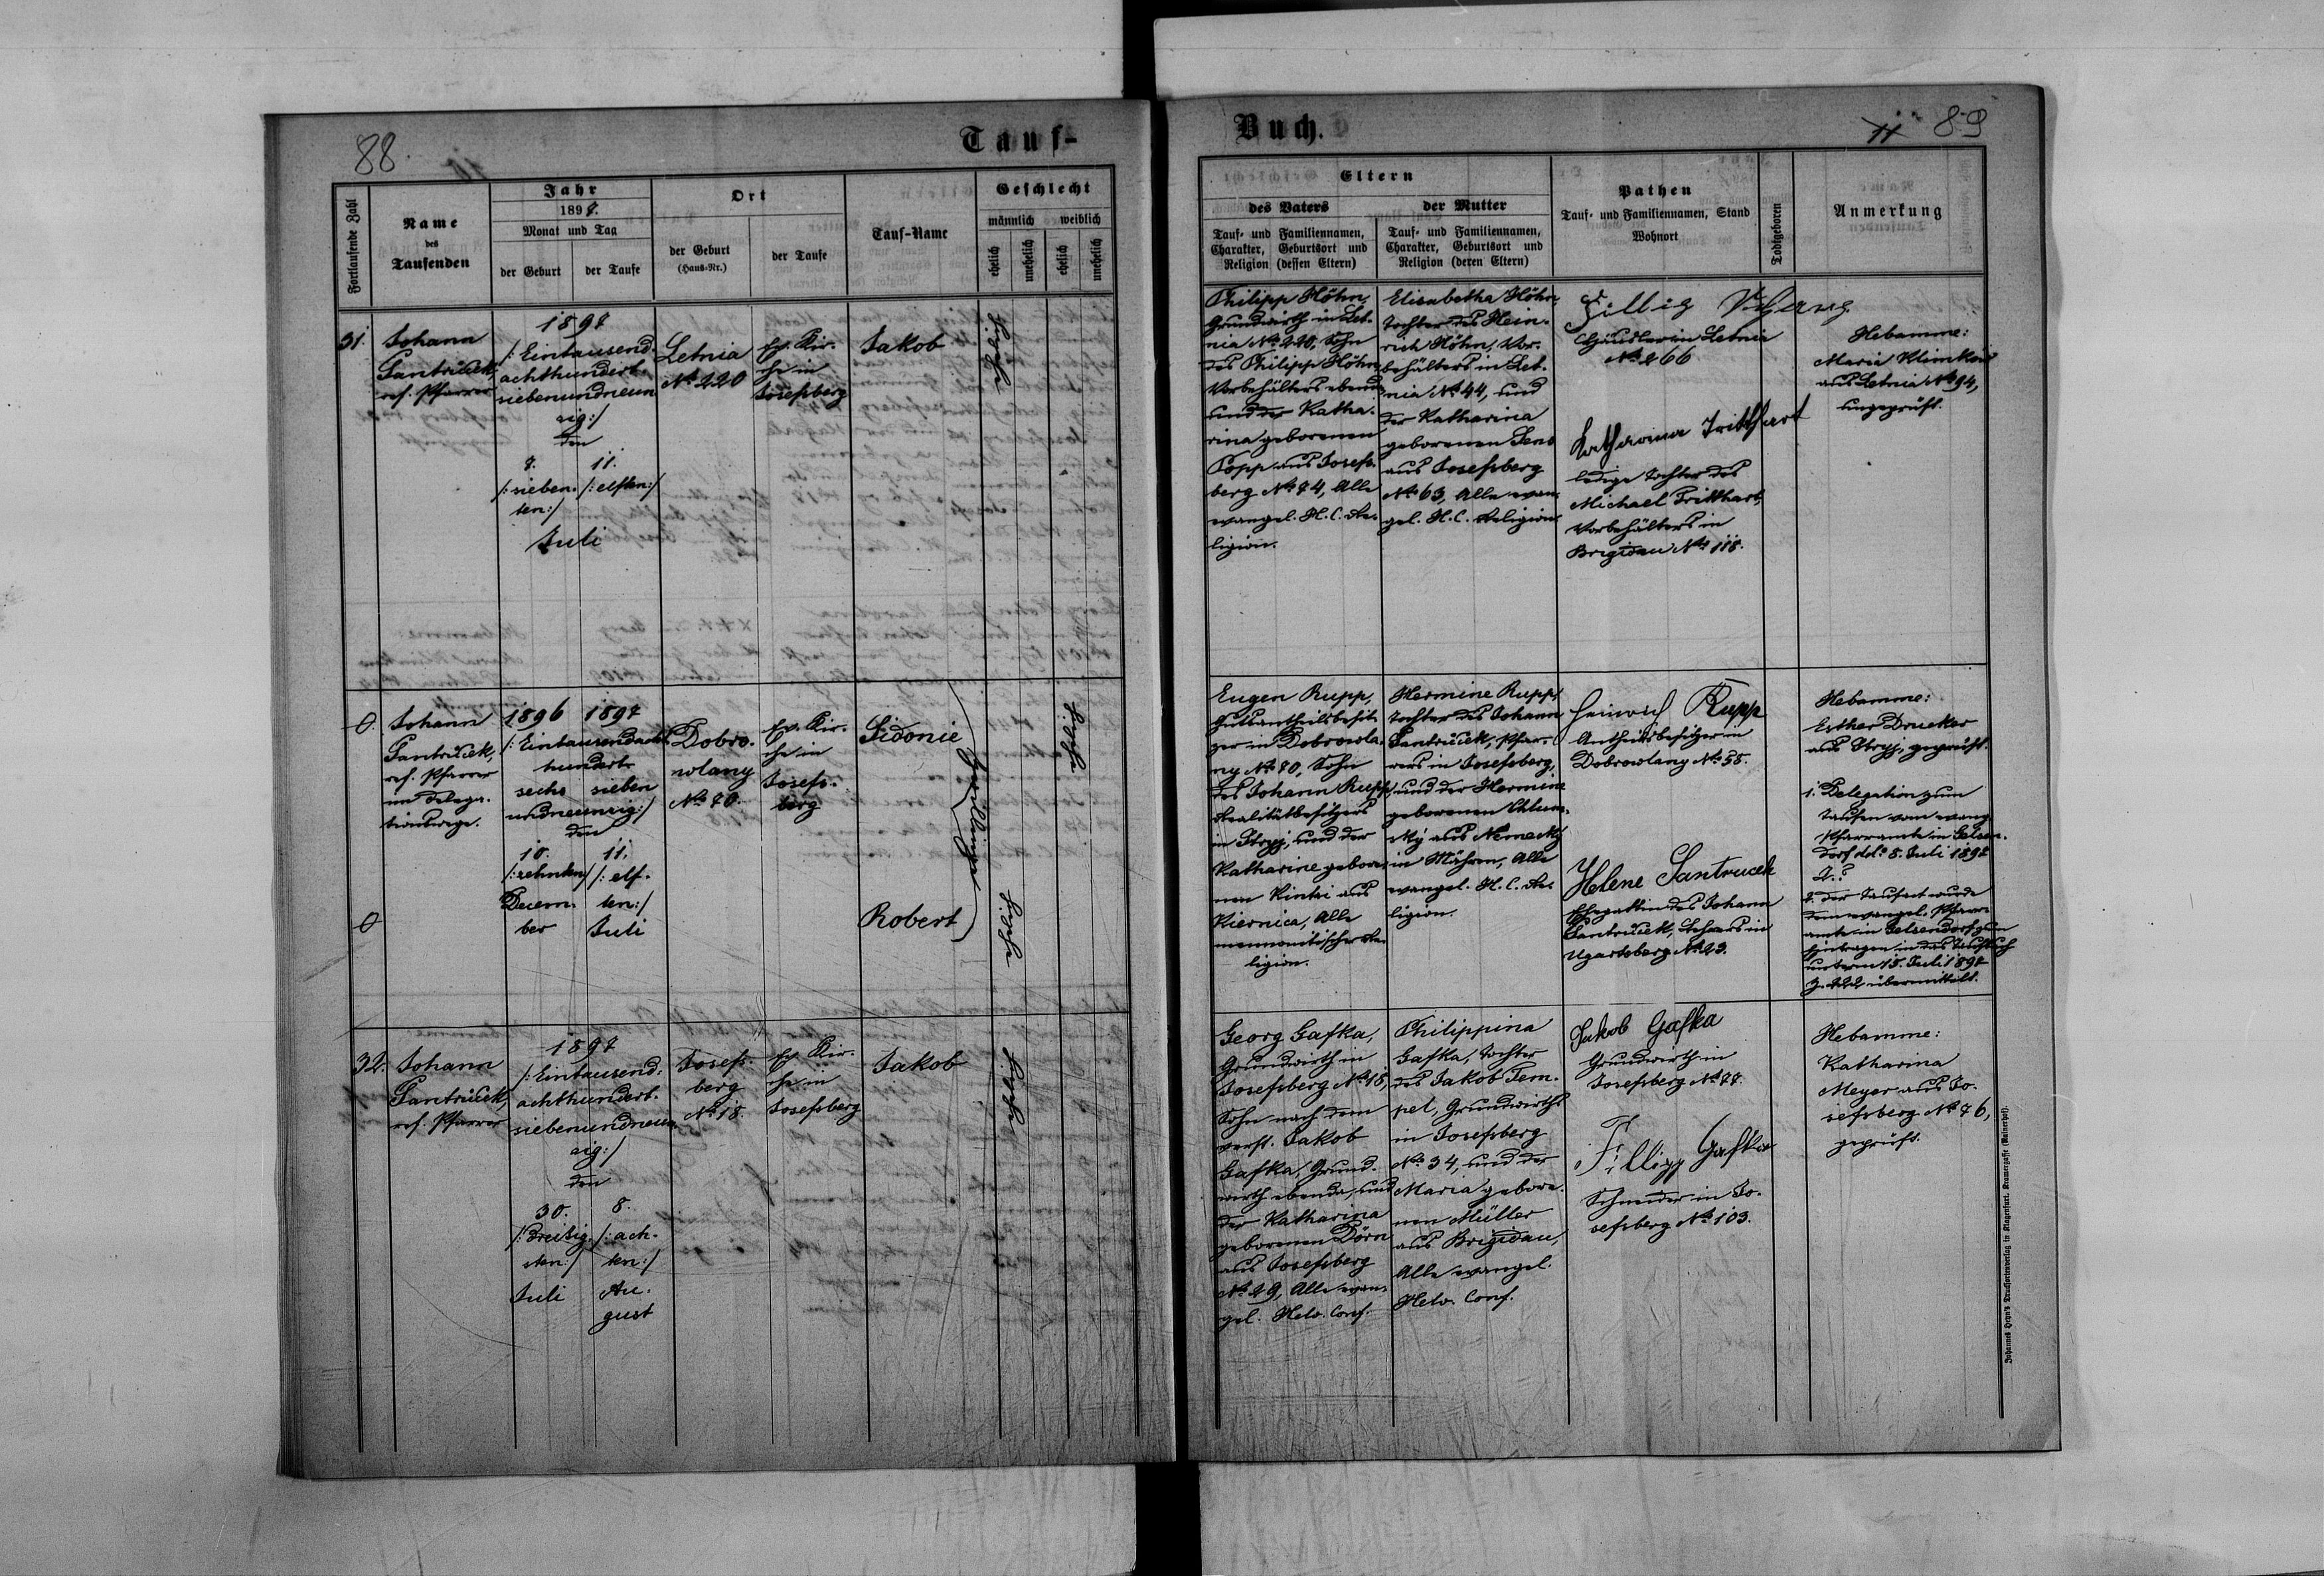 88.
Tauf-
Fortlaufende Zahl
Name
des
Taufenden
Jahr
1897.
Monat und Tag
der Geburt
der Taufe
Ort
der Geburt
(Haus-Nr.)
der Taufe
Tauf-Name
Geschlecht
männlich
weiblich
ehelich
unehelich
ehelich
unehelich
31.
Johann
Santruček,
ref. Pfarrer
1897
/:Eintausend-
achthundert-
siebenundneun
zig:/
den
7.
/:sieben-
ten:/
11.
/:elften:/
Juli
Letnia
No 220
Ev. Kir-
che in
Josefsberg
Jakob
ehelich
0.
0
Johann
Santruček,
ref. Pfarrer
im Delega-
tionswege.
1896 1897
/:Eintausendacht-
hundert-
sechs sieben
undneunzig:/
den
10.
/:zehnten:/
Decem-
ber
11.
/:elf-
ten:/
Juli
Dobro-
wlany
No 70.
Ev. Kir-
che in
Josefs-
berg
Sidonie
Robert
Zwillinge
ehelich
ehelich
32.
Johann
Santruček,
ref. Pfarrer
1897
/:Eintausend-
achthundert-
siebenundneun
zig:/
den
30.
/:dreißig-
sten:/
Juli
8.
/:ach-
ten:/
Au-
gust
Josefs-
berg
No 18.
Ev. Kir-
che in
Josefsberg
Jakob
ehelich
Buch.
11 89
Eltern
des Vaters
Tauf- und Familiennamen,
Charakter, Geburtsort und
Religion (dessen Eltern)
der Mutter
Tauf- und Familiennamen,
Charakter, Geburtsort und
Religion (deren Eltern)
Pathen
Tauf- und Familiennamen, Stand
Wohnort
Todtgeboren
Anmerkung
Philipp Höhn,
Grundwirth in Let-
nia No 220, Sohn
des Philipp Höhn,
Vorbehälters ebenda
und der Katha-
rina geborenen
Popp aus Josefs-
berg No 74, Alle
evangel. H. C. Re-
ligion.
Elisabetha Höhn,
Tochter des Hein-
rich Höhn, Vor-
behälters in Let-
nia No 44, und
der Katharina
geborenen Lens
aus Josefsberg
No 63, Alle evan-
gel. H. C. Religion.
in Letnia
No 266
Katharina Tritthart
ledige Tochter des
Michael Tritthart,
Vorbehälters in
Brigidau No 118.
Hebamme:
Maria Klimkow
aus Letnia No 94,
ungeprüft.
Eugen Rupp,
Gutsantheilsbesit-
zer in Dobrowla-
ny No 70, Sohn
des Johann Rupp,
Realitätbesitzers
in Stryj, und der
Katharine gebore-
nen Kintzi aus
Kiernica, Alle
mennonitischer Re-
ligion.
Hermine Rupp,
Tochter des Johann
Santruček, Pfar-
rers in Josefsberg,
und der Hermine
geborenen Chlum-
sky aus Nemecky
in Mähren, Alle
evangel. H. C. Re-
ligion.
Heinrich Rupp
Antheilsbesitzer in
Dobrowlany No 58.
Helene Santrucek
Ehegattin des Johann
Santruček, Lehrers in
Ugartsberg No 23.
Hebamme:
Esther Drucker
aus Stryj, geprüft.
1. Delegation zum
Taufen vom evang.
Pfarramte in Gelsen-
dorf dd. 8. Juli 1897
2. Der Taufact wurde
dem evangel. Pfarr-
amte in Gelsendorf zum
Eintragen in das Taufbuch
unterm 15. Juli 1897
Z. 222 übermittelt.
Georg Gafka,
Grundwirth in
Josefsberg No 18,
Sohn nach dem
verst. Jakob
Gafka, Grund-
wirth ebenda, und
der Katharina
geborenen Dörn
aus Josefsberg
No 29, Alle evan-
gel. Helv. Conf.
Philippina
Gafka, Tochter
des Jakob Tem-
pel, Grundwirths
in Josefsberg
No 34, und der
Maria gebore-
nen Müller
aus Brigidau,
Alle evangel.
Helv. Conf.
Jakob Gafka
Grundwirth in
Josefsberg No 77.
Fillipp Gafka
Schneider in Jo-
sefsberg No 103.
Hebamme:
Katharina
Meyer aus Jo-
sefsberg No 76,
geprüft.
Johannes Heyn's Drucksortenverlag in Klagenfurt, Kramergasse (Rainerhof).